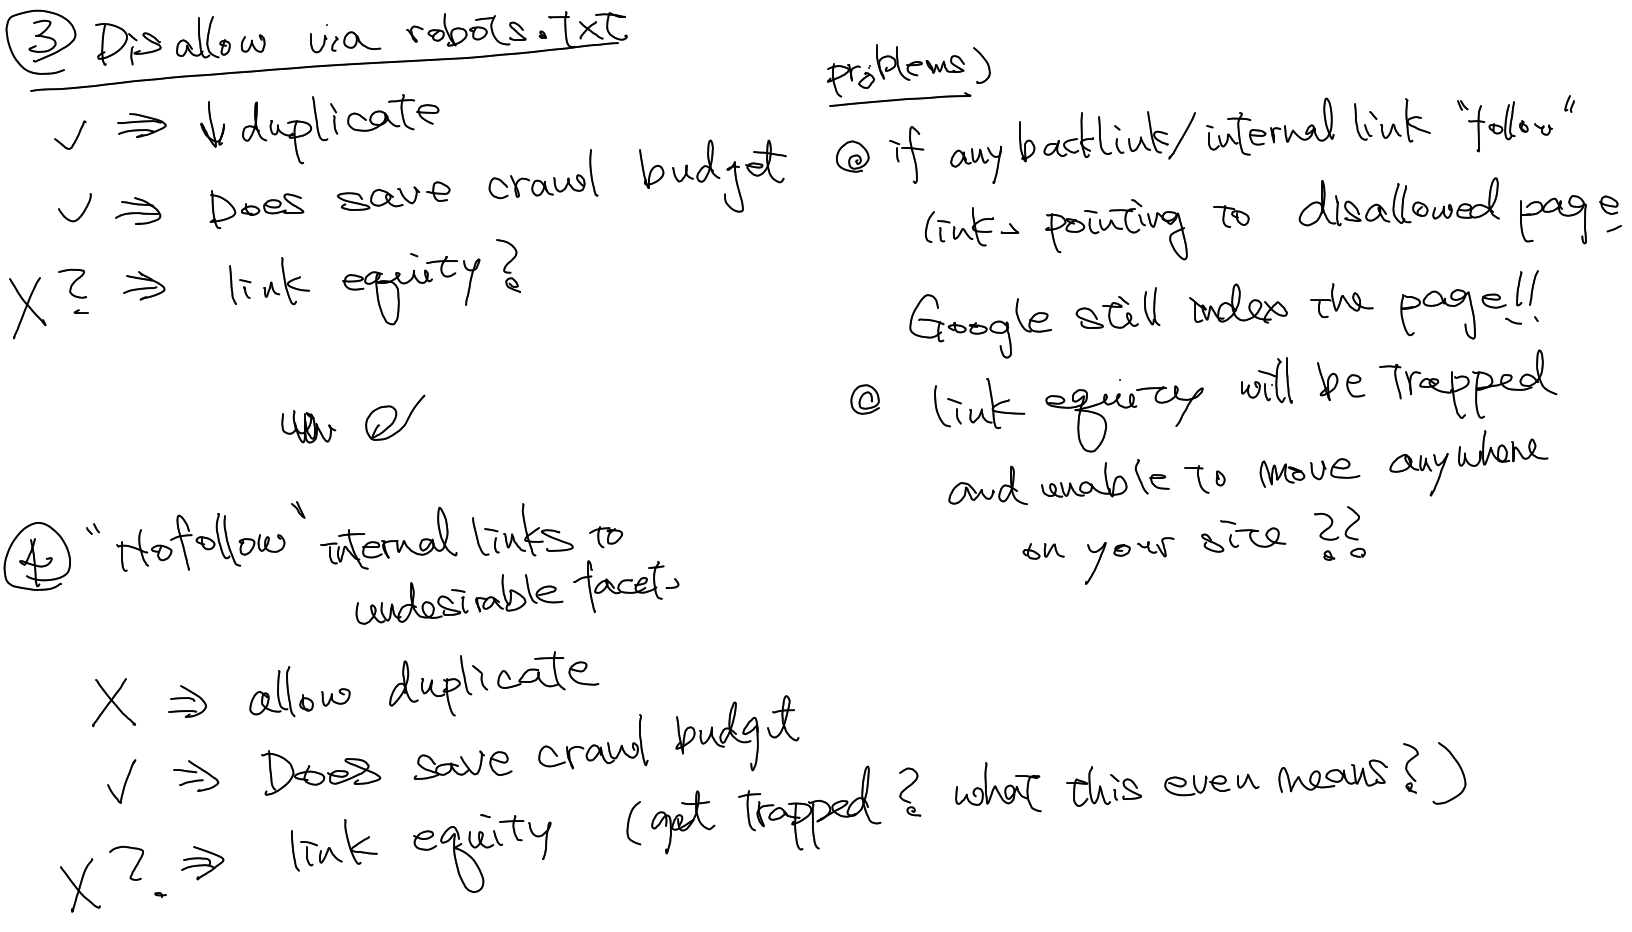 ③ Disallow via robots.txt
✓ ⇒ ↓ duplicate
✓ ⇒ Does save crawl budget
X? ⇒ link equity?
problems)
@ if any backlink/internal link "follow"
links pointing to disallowed page
Google still index the page!!
@ link equity will be trapped
and unable to move anywhere
on your site ??
④ "Nofollow" internal links to
undesirable facets
X ⇒ allow duplicate
✓ ⇒ Does save crawl budget
X? ⇒ link equity (get trapped? what this even means?)